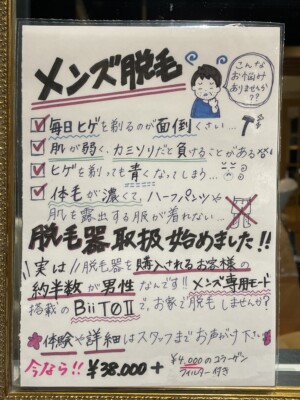 メンズ脱毛
こんな
お悩み
ありませんか
??
毎日ヒゲを剃るのが面倒くさい…
肌が弱く、カミソリだと負けることがある
ヒゲを剃っても青くなってしまう…
体毛が濃くて、ハーフパンツや
肌を露出する服が着れない…
脱毛器取扱始めました!!
\\実は// 脱毛器を購入されるお客様の
約半数が男性なんです!!メンズ専用モード
搭載のBiiTOⅡで、お家で脱毛しませんか?
体験や詳細はスタッフまでお声がけ下さい
今なら!! ¥38,000 + ¥4,000のコラーゲン
フィルター付き